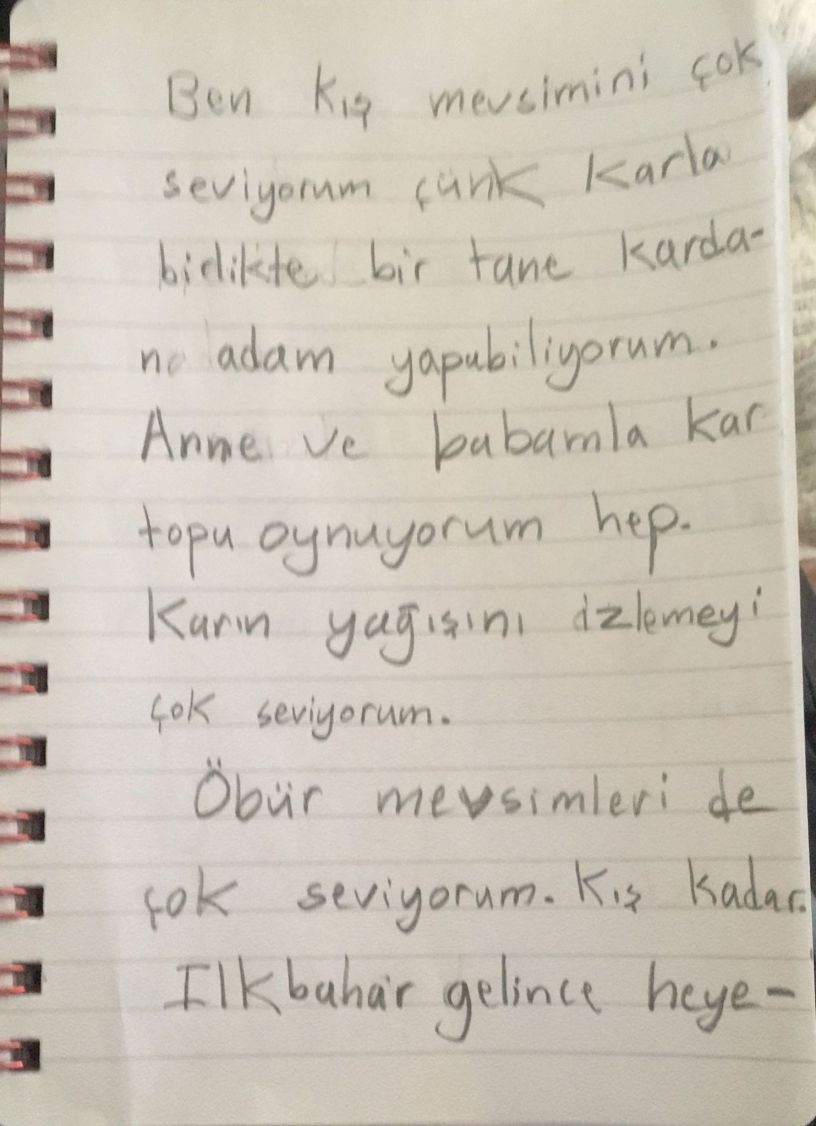 Ben kış mevsimini çok
seviyorum çünk karla
birlikte bir tane karda-
n adam yapabiliyorum.
Anne ve babamla kar
topu oynuyorum hep.
Karın yağışını izlemeyi
çok seviyorum.
Öbür mevsimleri de
çok seviyorum. Kış kadar.
Ilkbahar gelince heye-